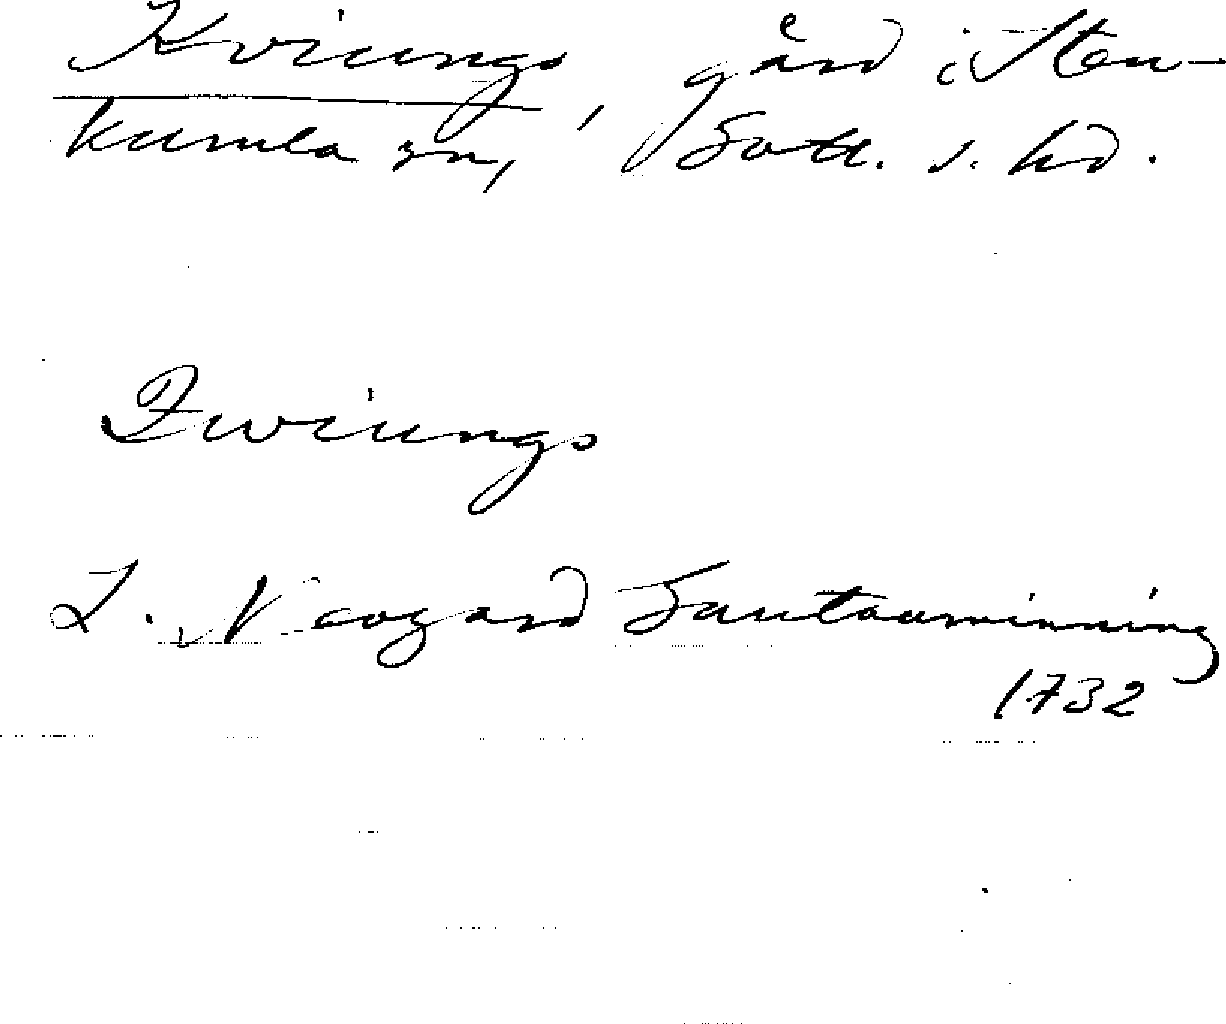 Kviungs, gård i Sten-
kumla sn, Gotl. s. hd.
Qwiungs
L. Neogard Gautauminning
1732